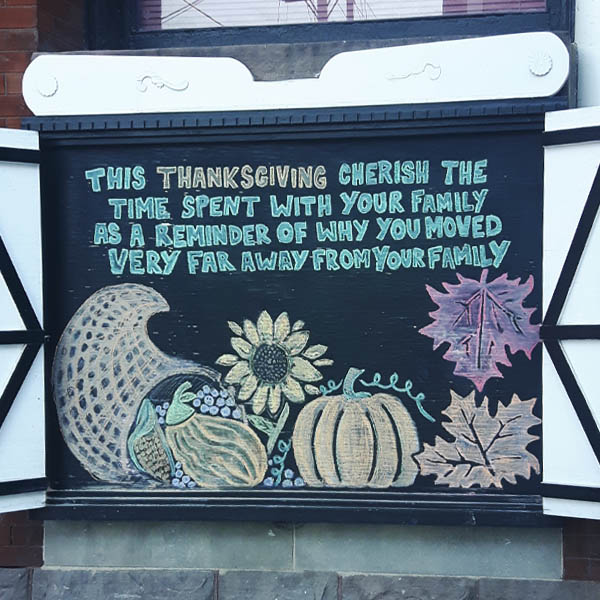 THIS THANKSGIVING CHERISH THE
TIME SPENT WITH YOUR FAMILY
AS A REMINDER OF WHY YOU MOVED
VERY FAR AWAY FROM YOUR FAMILY